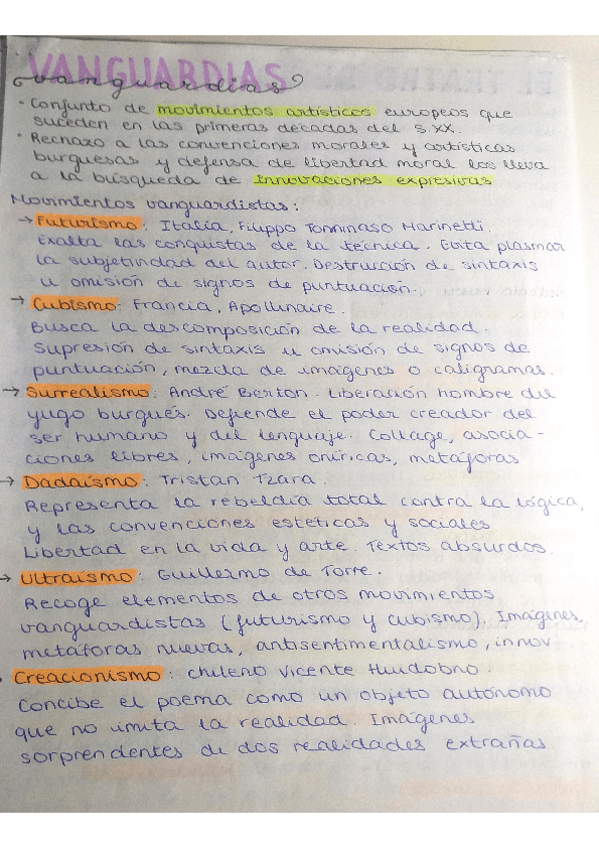 VANGUARDIAS
vanguardias
· Conjunto de movimientos artísticos europeos que
suceden en las primeras décadas del S.XX.
· Rechazo a las convenciones morales y artísticas
burguesas y defensa de libertad moral los lleva
a la búsqueda de innovaciones expresivas
Movimientos vanguardistas:
→ Futurismo: Italia, Filippo Tommaso Marinetti.
Exalta las conquistas de la técnica. Evita plasmar
la subjetividad del autor. Destrucción de sintaxis
u omisión de signos de puntuación.
→ Cubismo: Francia, Apollinaire.
Busca la descomposición de la realidad.
Supresión de sintaxis u omisión de signos de
puntuación, mezcla de imágenes o caligramas.
→ Surrealismo: André Berton. Liberación hombre del
yugo burgués. Defiende el poder creador del
ser humano y del lenguaje. Collage, asocia-
ciones libres, imágenes oníricas, metáforas
→ Dadaísmo: Tristan Tzara.
Representa la rebeldía total contra la lógica,
y las convenciones estéticas y sociales
Libertad en la vida y arte. Textos absurdos.
→ Ultraísmo: Guillermo de Torre.
Recoge elementos de otros movimientos
vanguardistas (futurismo y cubismo). Imágenes,
metáforas nuevas, antisentimentalismo, innov
Creacionismo: chileno Vicente Huidobro.
Concibe el poema como un objeto autónomo
que no imita la realidad. Imágenes
sorprendentes de dos realidades extrañas.